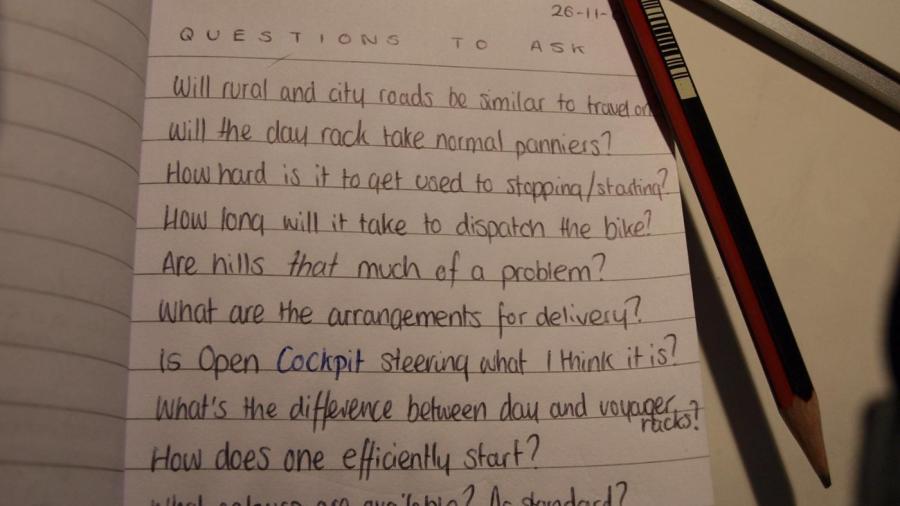 26-11-
QUESTIONS TO ASK
Will rural and city roads be similar to travel on
Will the day rack take normal panniers?
How hard is it to get used to stopping/starting?
How long will it take to dispatch the bike?
Are hills that much of a problem?
What are the arrangements for delivery?
is Open Cockpit steering what I think it is?
What's the difference between day and voyager
racks?
How does one efficiently start?
What colours are available? As standard?